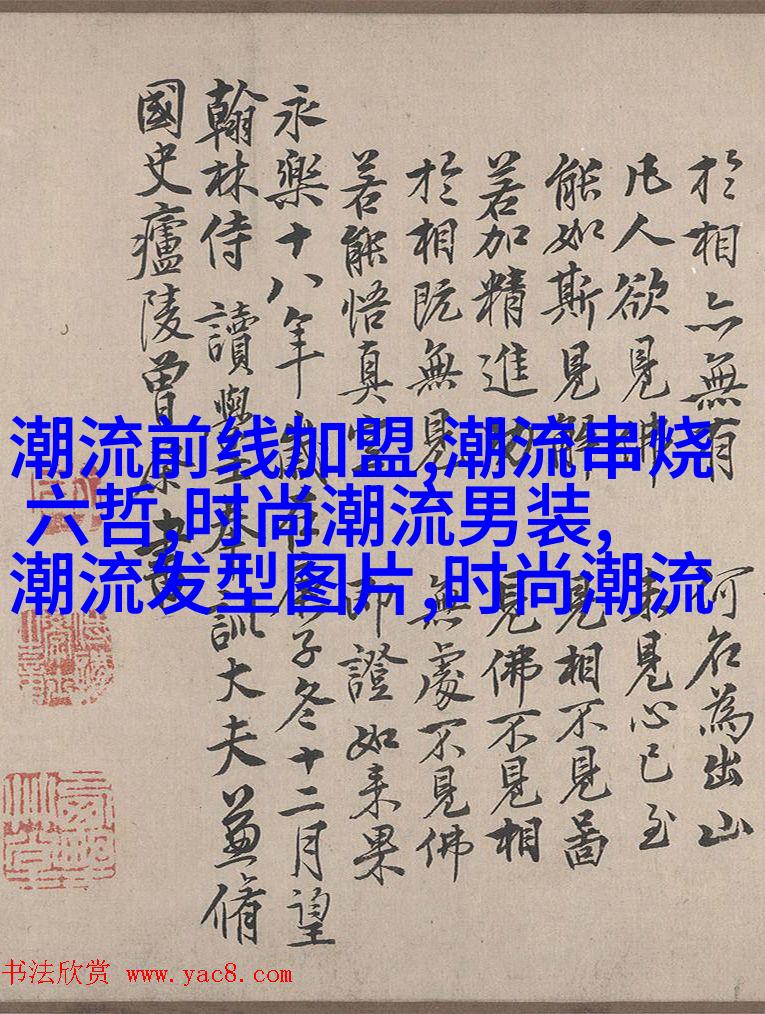 於相亦無有 何名為出山
凡人欲見佛 未見心已至
能如斯見解 見相不見啚
若加精進功 見佛不見相
於相既無見 無處不見佛
若能悟真空 即證如来果
永樂十八年歲在庚子冬十二月望
翰林侍讀學士奉訓大夫兼脩
國史廬陵曾棨書
潮流前线加盟,潮流串烧
六哲,时尚潮流男装,
潮流发型图片,时尚潮流
书法欣赏 www.yac8.com